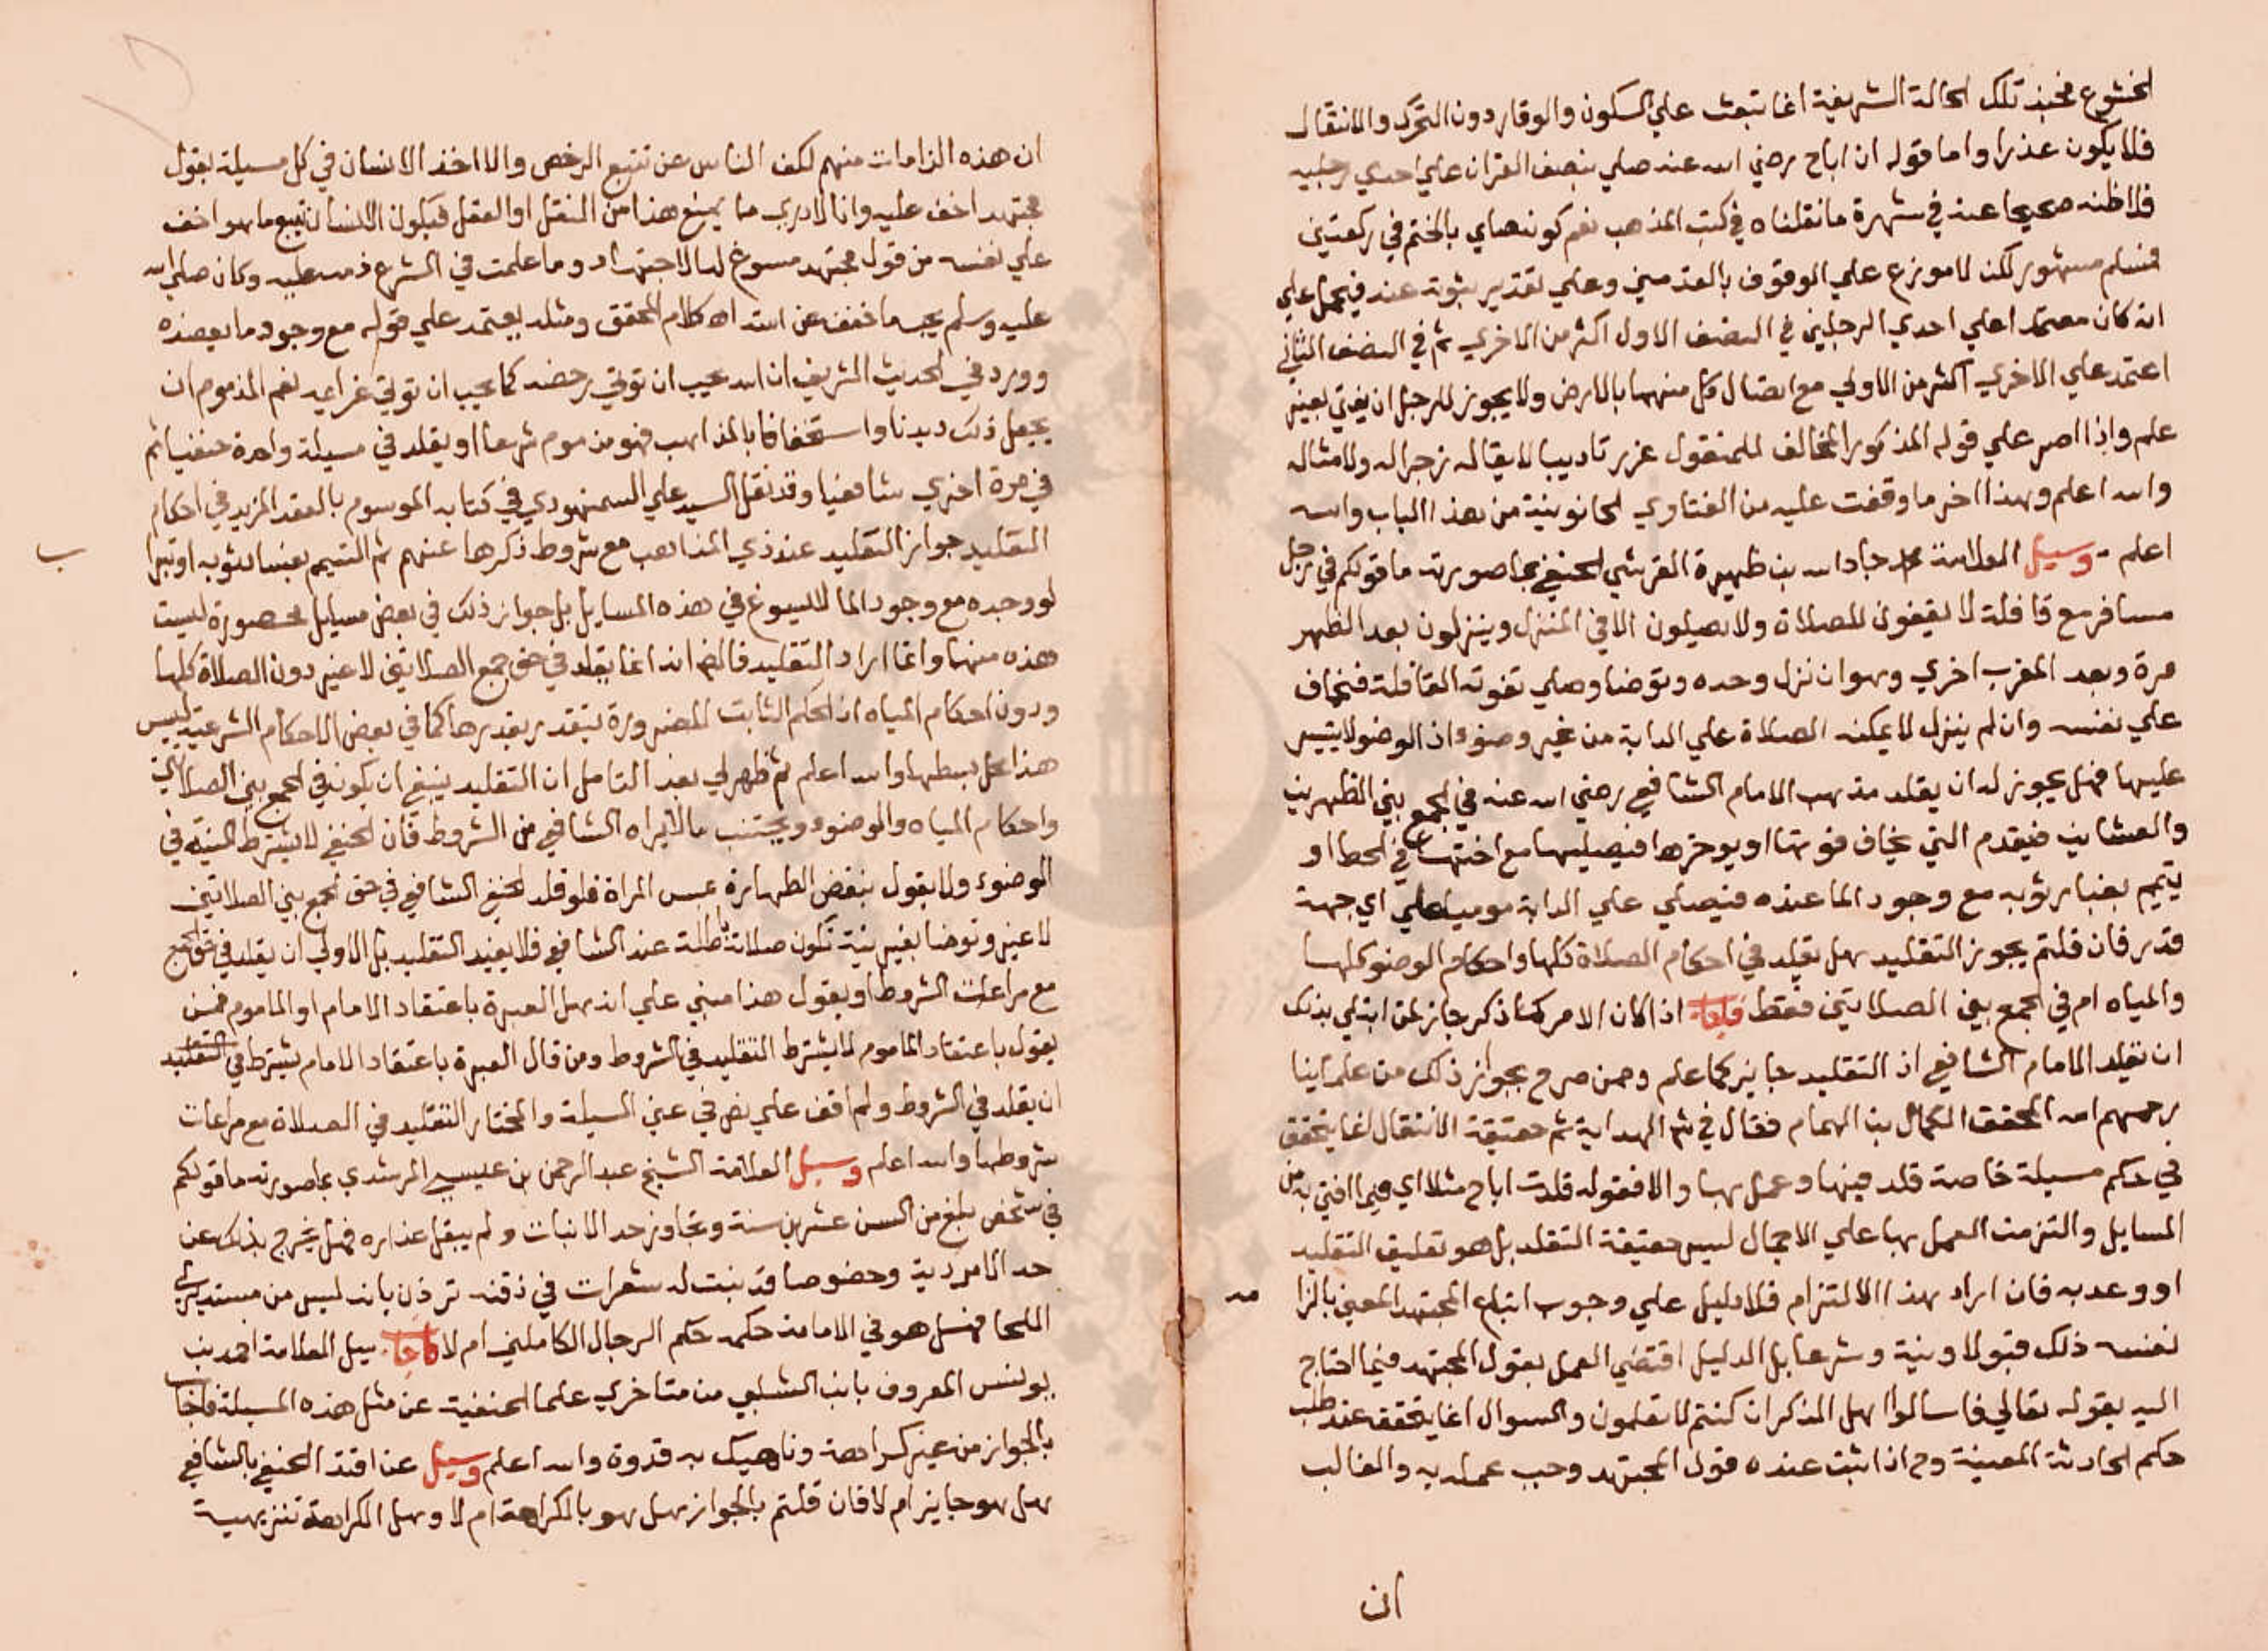 الخشوع فحينئذ تلك الحالة الشريفة انما تبعث علي السكون والوقار دون التحرك والانتقال
فلا يكون عذرا واما قوله ان اباح رضي الله عنه صلي بنصف القران علي احدي رجليه
فلا اظنه صحيحا عنه في شهرة ما نقلناه في كتب المذهب نعم كونه صلي بالختم في ركعتين
فمسلم مشهور لكن لا موزع علي الوقوف بالقدمين وعلي تقدير ثبوته عنه فيحمل علي
انه كان معتمدا علي احدي الرجلين في النصف الاول اكثر من الاخري ثم في النصف الثاني
اعتمد علي الاخري اكثر من الاولي مع اتصال كل منهما بالارض ولا يجوز للرجل ان يفتي بغير
علم واذا اصر علي قوله المذكور المخالف للمنقول عزر تاديبا لا يقاله زجرا له ولامثاله
والله اعلم وهذا اخر ما وقفت عليه من الفتاوي الحانوتية من هذا الباب والله
اعلم وسيل العلامة جاد الله بن ظهيرة القرشي الحنفي بما صورته ما قولكم في رجل
مسافر مع قافلة لا يقفون للصلاة ولا يصلون الا في المنزل وينزلون بعد الظهر
مرة وبعد المغرب اخري وهو ان نزل وحده وتوضا وصلي تفوته القافلة فيخاف
علي نفسه وان لم ينزل لا يمكنه الصلاة علي الدابة من غير وضوء اذ الوضو لا يتيسر
عليها فهل يجوز له ان يقلد مذهب الامام الشافعي رضي الله عنه في الجمع بين الظهرين
والعشاين فيقدم التي يخاف فوتها او يوخرها فيصليها مع اختها في الحط او
يتيمم بغبار ثوبه مع وجود الما عنده فيصلي علي الدابة موميا علي اي جهة
قدر فان قلتم يجوز التقليد هل يقلد في احكام الصلاة كلها واحكام الوضو كلها
والمياه ام في الجمع بين الصلاتين فقط فاجاب اذا كان الامر كما ذكر جاز لمن ابتلي بذلك
ان يقلد الامام الشافعي اذ التقليد جايز كما علم وممن صرح بجواز ذلك من علماينا
رحمهم الله المحقق الكمال بن الهمام فقال في شرح الهداية ثم حقيقة الانتقال انما يتحقق
في حكم مسيلة خاصة قلد فيها وعمل بها والا فقوله قلدت اباح مثلا اي فيما افتي به من
المسايل والتزمت العمل بها علي الاجمال ليس حقيقة التقلد بل هو تعليق التقليد
او وعد به فان اراد بهذا الالتزام فلا دليل علي وجوب اتباع المجتهد المعين بالزا مه
نفسه ذلك قبولا ونية وشرعا بل الدليل اقتضي العمل بقول المجتهد فيما احتاج
اليه بقوله تعالي فاسالوا اهل الذكر ان كنتم لا تعلمون والسوال انما يتحقق عند طلب
حكم الحادثة المعينة وح اذا ثبت عنده قول المجتهد وجب عمله به والغالب
ان
ان هذه الزامات منهم لكف الناس عن تتبع الرخص والا اخذ الانسان في كل مسيلة بقول
مجتهد اخف عليه وانا لا ادري ما يمنع هذا من النقل او العقل فيكون الانسان يتبع ما هو اخف
علي نفسه من قول مجتهد مسوغ له الاجتهاد وما علمت في الشرع ذمه عليه وكان صلي الله
عليه وسلم يحب ما خفف عن امته اه كلام المحقق ومثله يعتمد علي قوله مع وجود ما يعضده
وورد في الحديث الشريف ان الله يحب ان توتي رخصه كما يحب ان توتي عزايمه نعم المذموم ان
يجعل ذلك ديدنا واستخفافا بالمذاهب فهو مذموم شرعا او يقلد في مسيلة واحدة حنفيا ثم
في مرة اخري شافعيا وقد نقل السيد علي السمنهودي في كتابه الموسوم بالعقد الفريد في احكام
التقليد جواز التقليد عند ذي المذاهب مع شروط ذكرها عنهم ثم التيمم بغبار ثوبه او تبرا ب
لو وجده مع وجود الما لا يسوغ في هذه المسايل بل جواز ذلك في بعض مسايل محصورة ليست
هذه منها واذا اراد التقليد فالظ انه انما يقلد في حق جمع الصلاتين لا غير دون الصلاة كلها
ودون احكام المياه اذ الحكم الثابت للضرورة يتقدر بقدرها كما في بعض الاحكام الشرعية ليس
هذا محل بسطها والله اعلم ثم ظهر لي بعد التامل ان التقليد ينبغي ان يكون في الجمع بين الصلاتين
واحكام المياه والوضوء ويجتنب ما لا يراه الشافعي من الشروط فان الحنفي لا يشترط النية في
الوضوء ولا يقول بنقض الطهارة بمس المراة فلو قلد الحنفي الشافعي في حق الجمع بين الصلاتين
لا غير وتوضا بغير نية تكون صلاته باطلة عند الشافعي فلا يفيد التقليد بل الاولي ان يقلد في حق الجمع
مع مراعات الشروط او يقول هذا مبني علي انه هل العبرة باعتقاد الامام او الماموم فمن
يقول باعتقاد الماموم لا يشترط التقليد في الشروط ومن قال العبرة باعتقاد الامام يشترط في التقليد
ان يقلد في الشروط ولم اقف علي نص في عين المسيلة والمختار التقليد في الصلاة مع مراعات
شروطها والله اعلم وسيل العلامة الشيخ عبد الرحمن بن عيسي المرشدي بما صورته ما قولكم
في شخص بلغ من السن عشرين سنة وتجاوز حد الانبات ولم يبقل عذاره فهل يخرج بذلك عن
حد الامردية وخصوصا قد نبت له شعرات في ذقنه تر ذن بانه ليس من مستديري
اللحا فهل هو في الامامة حكمه حكم الرجال الكاملين ام لا فاجاب سيل العلامة احمد بن
يونس المعروف بابن الشلبي من متاخري علما الحنفية عن مثل هذه المسيلة فاجاب
بالجواز من غير كراهة وناهيك به قدوة والله اعلم وسيل عن اقتدا الحنفي بالشافعي
هل هو جايز ام لا فان قلتم بالجواز هل هو بالكراهة ام لا وهل الكراهة تنزيهية